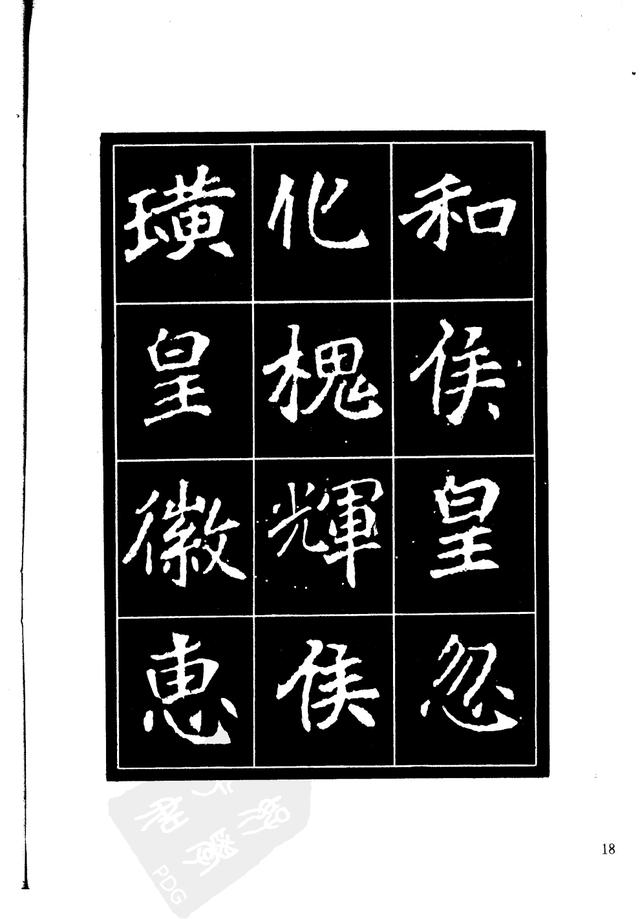 和侯皇忽
化槐輝侯
璜皇徽惠
18
PDG